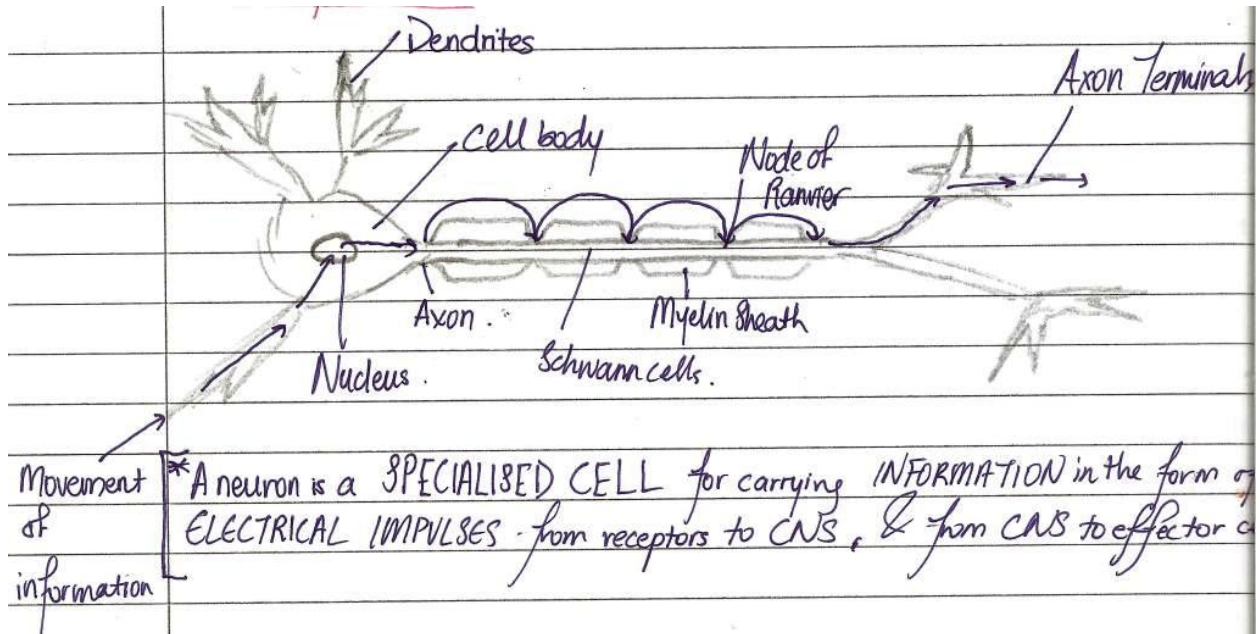 Dendrites
Axon Terminals
Cell body
Node of
Ranvier
Axon.
Myelin Sheath
Nucleus.
Schwann cells.
Movement
of
information
*A neuron is a SPECIALISED CELL for carrying INFORMATION in the form of
ELECTRICAL IMPULSES - from receptors to CNS, & from CNS to effector